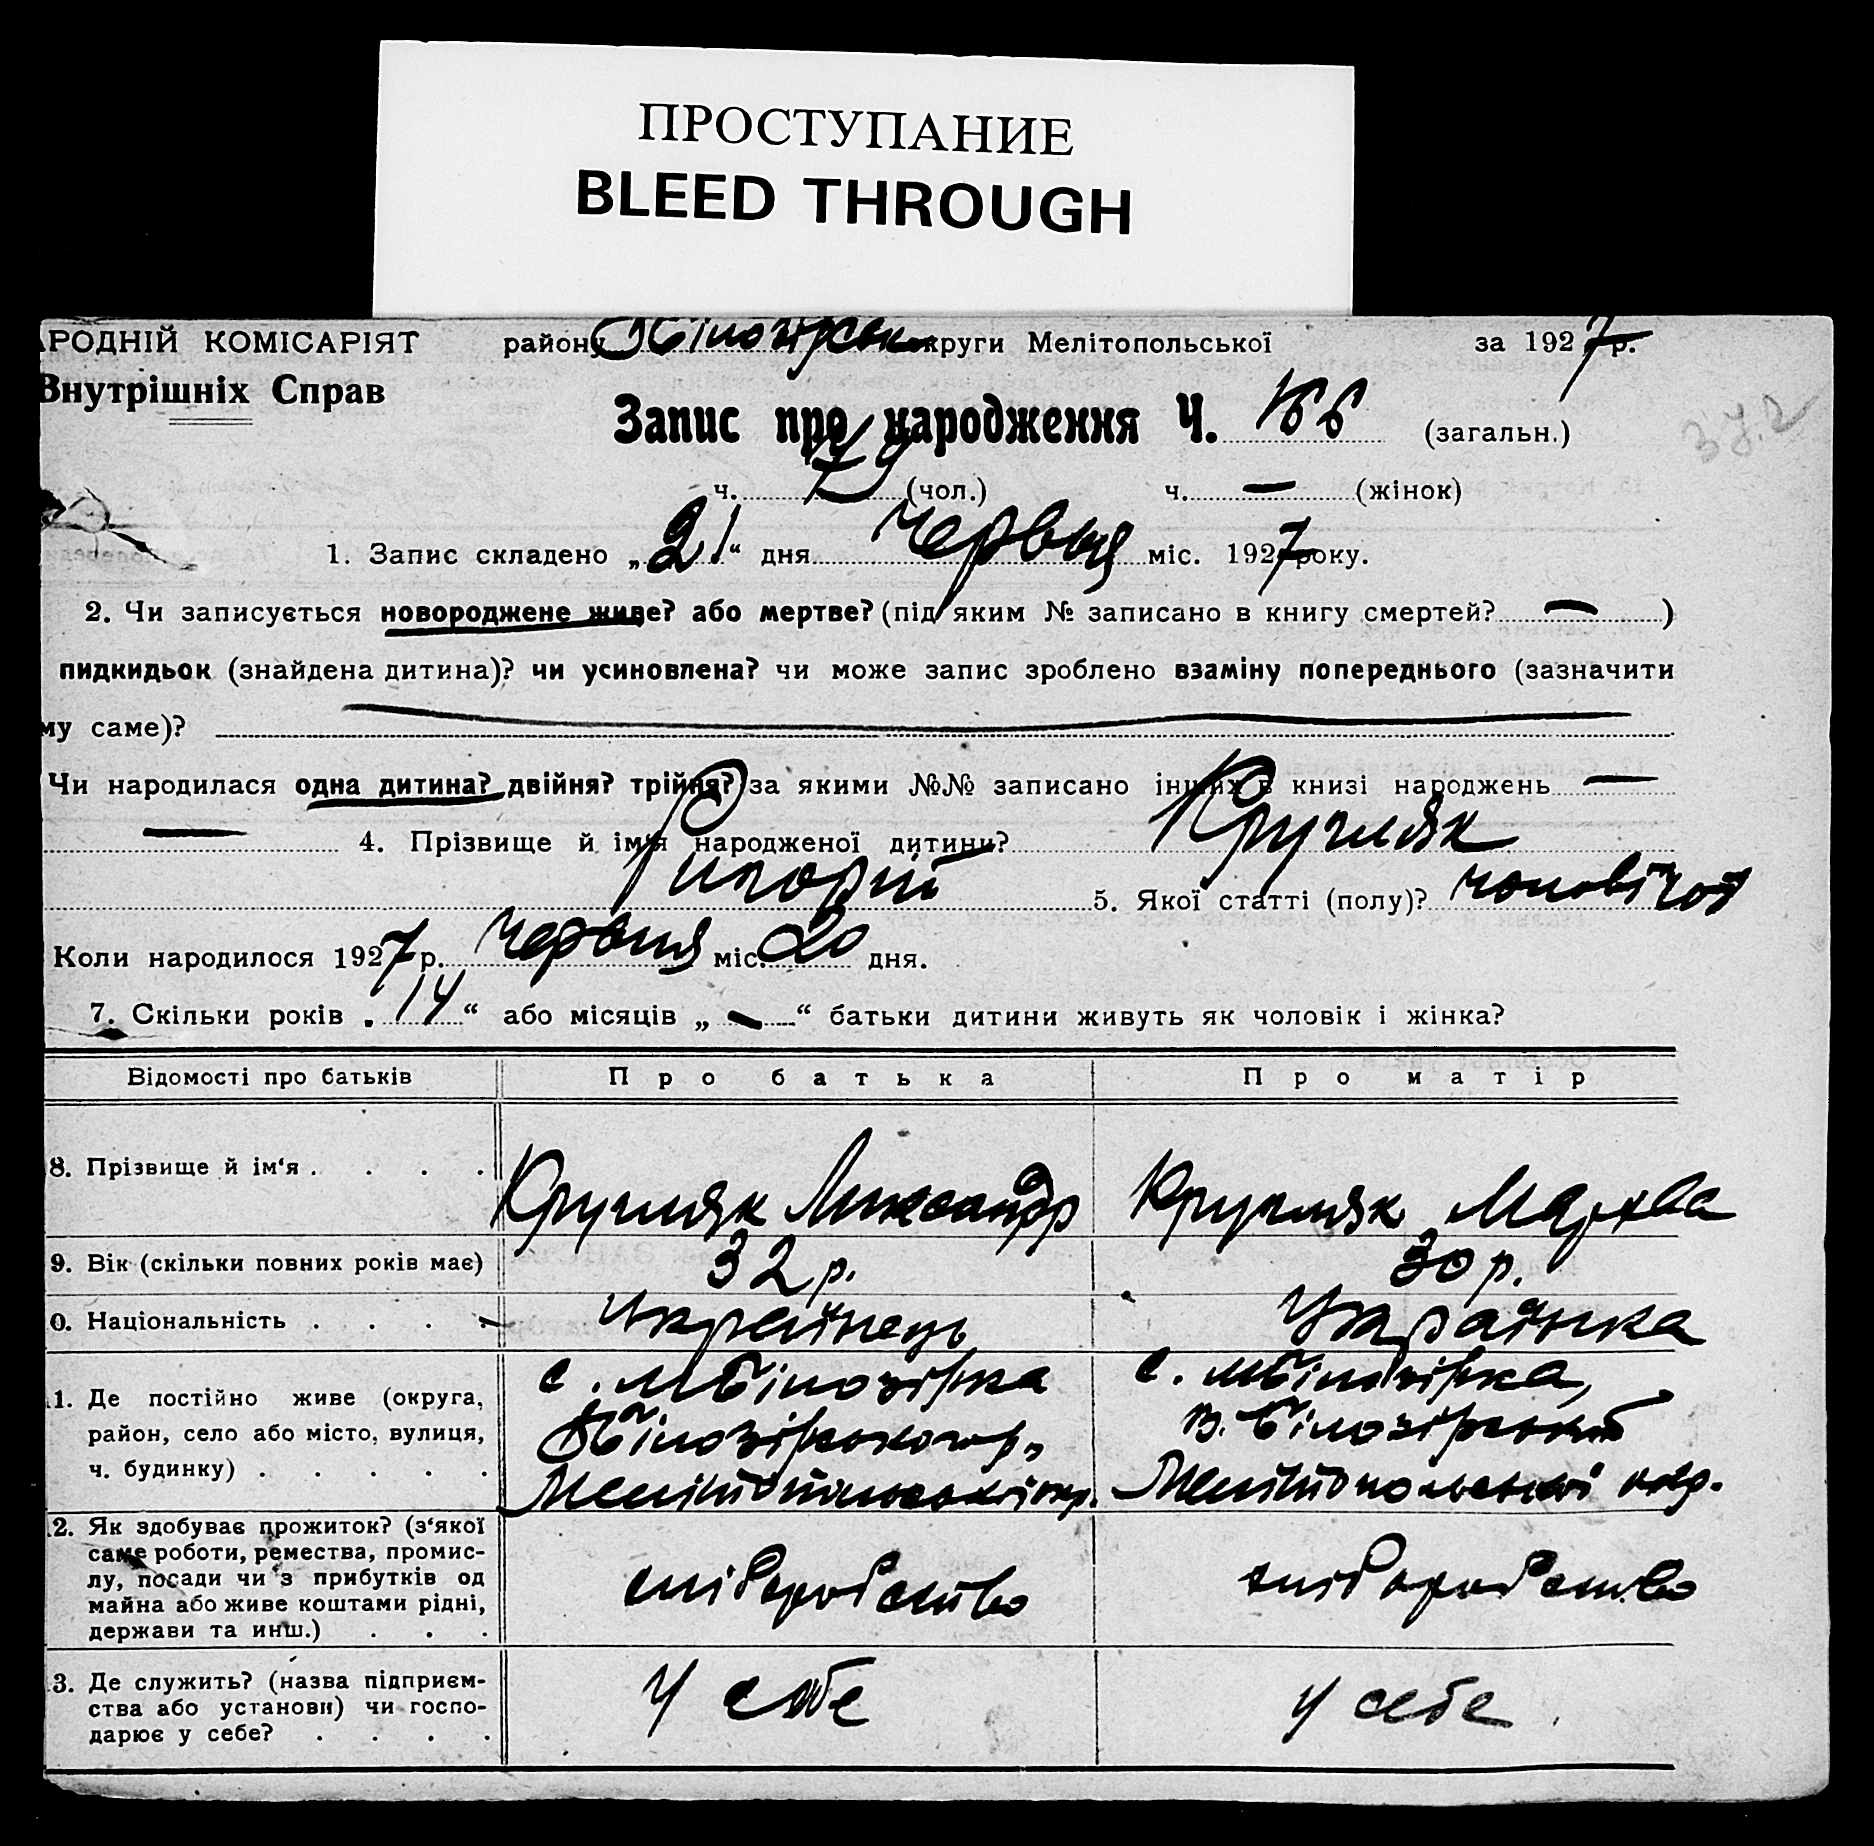 ПРОСТУПАНИЕ
BLEED THROUGH
РОДНІЙ КОМІСАРІЯТ району округи Мелітопольської за 1927 р.
Внутрішніх Справ
Запис про народження Ч. 166 (загальн.)
ч. 79 (чол.) ч. — (жінок)
1. Запис складено „21“ дня червця міс. 1927 року.
2. Чи записується новороджене живе? або мертве? (під яким № записано в книгу смертей? — )
пидкидьок (знайдена дитина)? чи усиновлена? чи може запис зроблено взаміну попереднього (зазначити
му саме)?
Чи народилася одна дитина? двійня? трійня? за якими №№ записано інших в книзі народжень —
— 4. Прізвище й ім'я народженої дитини? Кругляк
Григорій 5. Якої статті (полу)? чоловічої
Коли народилося 1927 р. червця міс. 20 дня.
7. Скільки років „14“ або місяців „—“ батьки дитини живуть як чоловік і жінка?
Відомості про батьків Про батька Про матір
8. Прізвище й ім‘я . . . . Кругляк Олександр Кругляк Марфа
9. Вік (скільки повних років має) 32 р. 30 р.
0. Національність . . . . Українець Українка
1. Де постійно живе (округа, район, село або місто, вулиця, ч. будинку) . . . . . с. мБілозірка Білозірського р., Мелітопільської окр. с. мБілозірка, Мелітопольської окр.
2. Як здобуває прожиток? (з‘якої
саме роботи, ремества, промис-
лу, посади чи з прибутків од
майна або живе коштами рідні,
держави та инш.) . . . хліборобство хліборобство
3. Де служить? (назва підприєм-
ства або установи) чи госпо-
дарює у себе? . . . . У себе у себе.